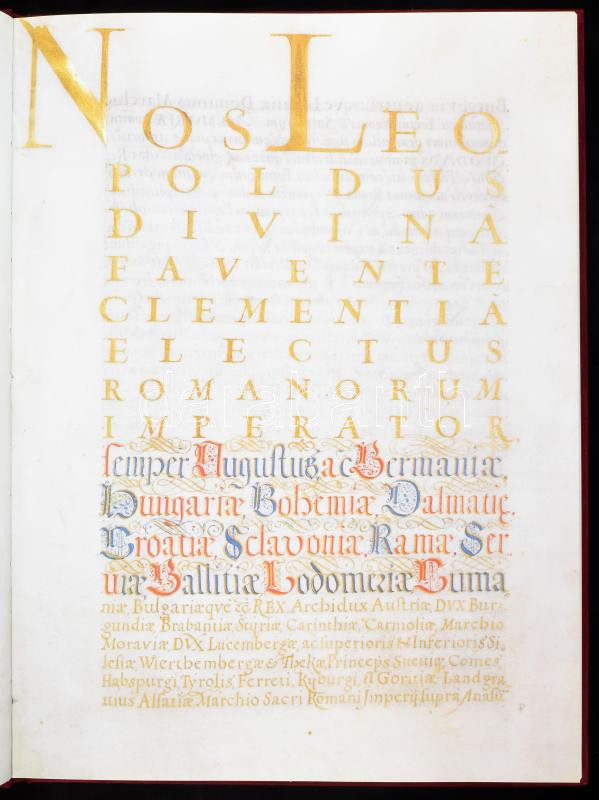 NOS LEO
POLDUS
DIVINÃ
FAVENTE
CLEMENTIÃ
ELECTUS
ROMANORUM
IMPERATOR
semper Augustus, ac Germaniæ,
Hungariæ, Bohemiæ, Dalmatię,
Croatiæ, Sclavoniæ, Ramæ, Ser-
viæ, Gallitiæ, Lodomeriæ, Cuma
niæ, Bulgariæqve &c REX. Archidux Austriæ, DVX Bur-
gundiæ, Brabantiæ, Styriæ, Carinthiæ, Carnioliæ, Marchio
Moraviæ, DVX Lucembergæ, ac superioris & Inferioris Si-
lesiæ, Wierthembergæ & Thekæ, Princeps Sueviæ, Comes
Habspurgi, Tyrolis, Ferreti, Kyburgi, et Goritiæ, Landgra
vius Alsatiæ Marchio Sacri Romani Imperij supra Anasũ
darabanth